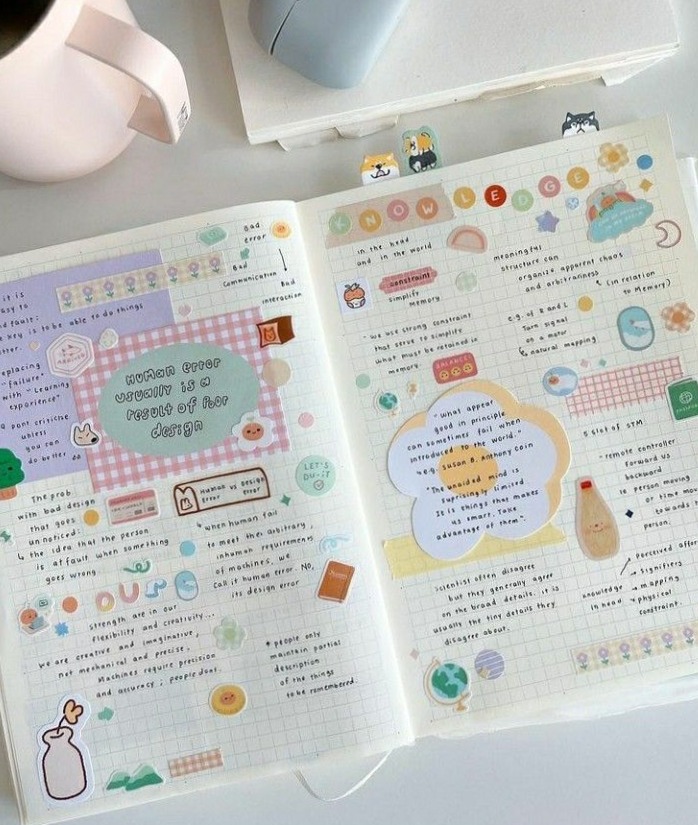 it is
asy to
nd fault:
e key is to be able to do things
tter.
eplacing
"failure"
with "Learning
experience"
pont criticise
unless
you can
do better
Bad
error
Bad
Communication
Bad
interaction
Human error
usually is a
result of poor
design
The prob.
with bad design
that goes
unnoticed:
the idea that the person
is at fault when something
goes wrong
Human vs Design
error error
LET'S
DU-IT
when human fail
to meet the arbitrary,
inhuman requirements
of machines, we
call it human error. NO,
its design error
OUR
strength are in our
flexibility and creativity...
we are creative and imaginative,
not mechanical and precise.
Machines require precision
and accuracy; people dont.
* people only
maintain partial
description
of the things
to be remembered.
KNOWLEDGE
in the head
and in the world
constraint
simplify
memory
meaningful
structure can
organize apparent chaos
and arbitrariness
(in relation
to Memory)
"we use strong constraint
that serve to simplify
what must be retained in
memory.
e.g. of R and L
Turn signal
on a motor
natural mapping
BALANCE!
"what appear
good in principle
can sometimes fail when
introduced to the world."
e.g. Susan B. Anthony Coin
"The unaided mind is
surprisingly limited.
It is things that makes
us smart. Take
advantage of them".
5 slot of STM
"remote controller
forward vs
backward
is person moving
or time mo
towards
person.
Scientist often disagree
but they generally agree
on the broad details. it is
usually the tiny details they
disagree about.
Perceived affor
signifiers
knowledge mapping
in head physical
constraint.